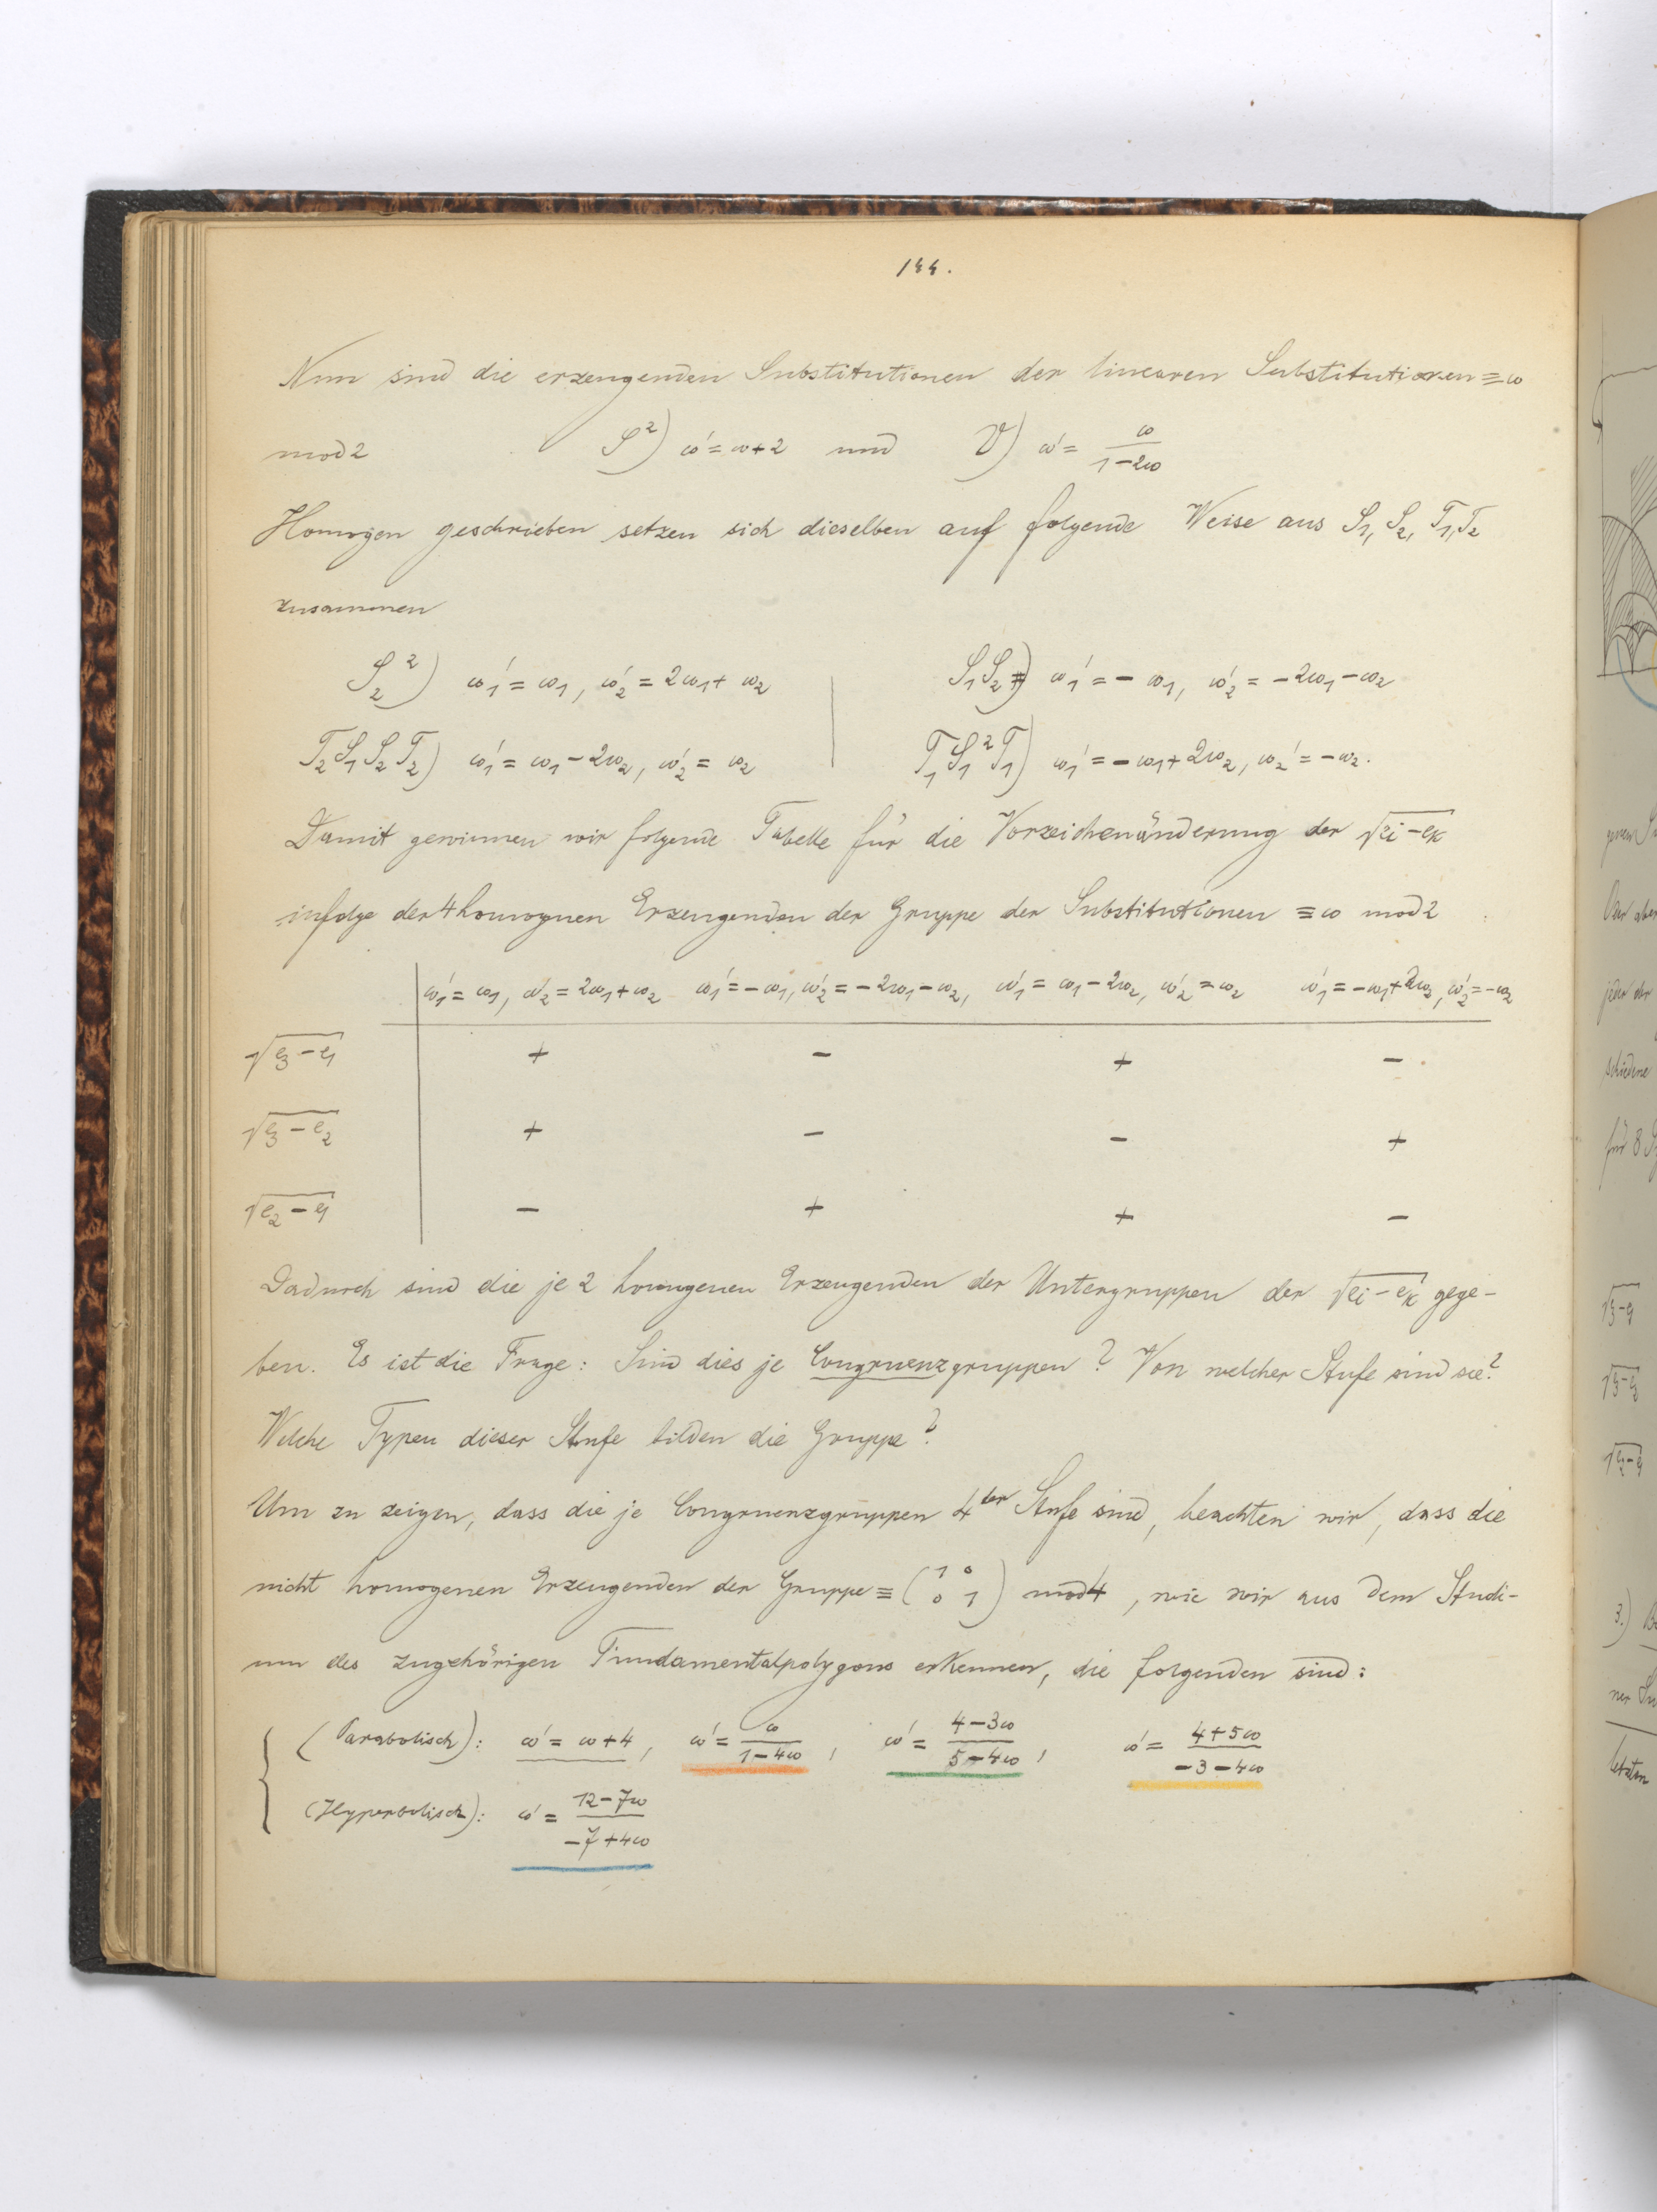 144.
Nun sind die erzeugenden Substitutionen der linearen Substitutionen ≡ ω
mod 2 S²) ω' = ω+2 und V) ω' = ω/(1-2ω)
Homogen geschrieben setzen sich dieselben auf folgende Weise aus S₁, S₂, T₁, T₂
zusammen
S₂²) ω₁' = ω₁, ω₂' = 2ω₁ + ω₂ | S₁S₂) ω₁' = - ω₁, ω₂' = -2ω₁ - ω₂
T₂S₁S₂T₂) ω₁' = ω₁ - 2ω₂, ω₂' = ω₂ | T₁S₁²T₁) ω₁' = -ω₁ + 2ω₂, ω₂' = -ω₂.
Damit gewinnen wir folgende Tabelle für die Vorzeichenänderung der √(ei - ek)
infolge der 4 homogenen Erzeugenden der Gruppe der Substitutionen ≡ ω mod 2
ω₁' = ω₁, ω₂' = 2ω₁ + ω₂ ω₁' = -ω₁, ω₂' = -2ω₁ - ω₂, ω₁' = ω₁ - 2ω₂, ω₂' = ω₂ ω₁' = -ω₁ + 2ω₂, ω₂' = -ω₂
√(e₃ - e₁) + - + -
√(e₃ - e₂) + - - +
√(e₂ - e₁) - + + -
Dadurch sind die je 2 homogenen Erzeugenden der Untergruppen der √(ei - ek) gege-
ben. Es ist die Frage: Sind dies je Congruenzgruppen? Von welcher Stufe sind sie?
Welche Typen dieser Stufe bilden die Gruppe?
Um zu zeigen, dass die je Congruenzgruppen 4ter Stufe sind, beachten wir, dass die
nicht homogenen Erzeugenden der Gruppe ≡ (1 0 0 1) mod 4, wie wir aus dem Studi-
um des zugehörigen Fundamentalpolygons erkennen, die folgenden sind:
(Parabolisch): ω' = ω+4, ω' = ω/(1-4ω), ω' = (4-3ω)/(5-4ω), ω' = (4+5ω)/(-3-4ω)
(Hyperbolisch): ω' = (12-7ω)/(-7+4ω)